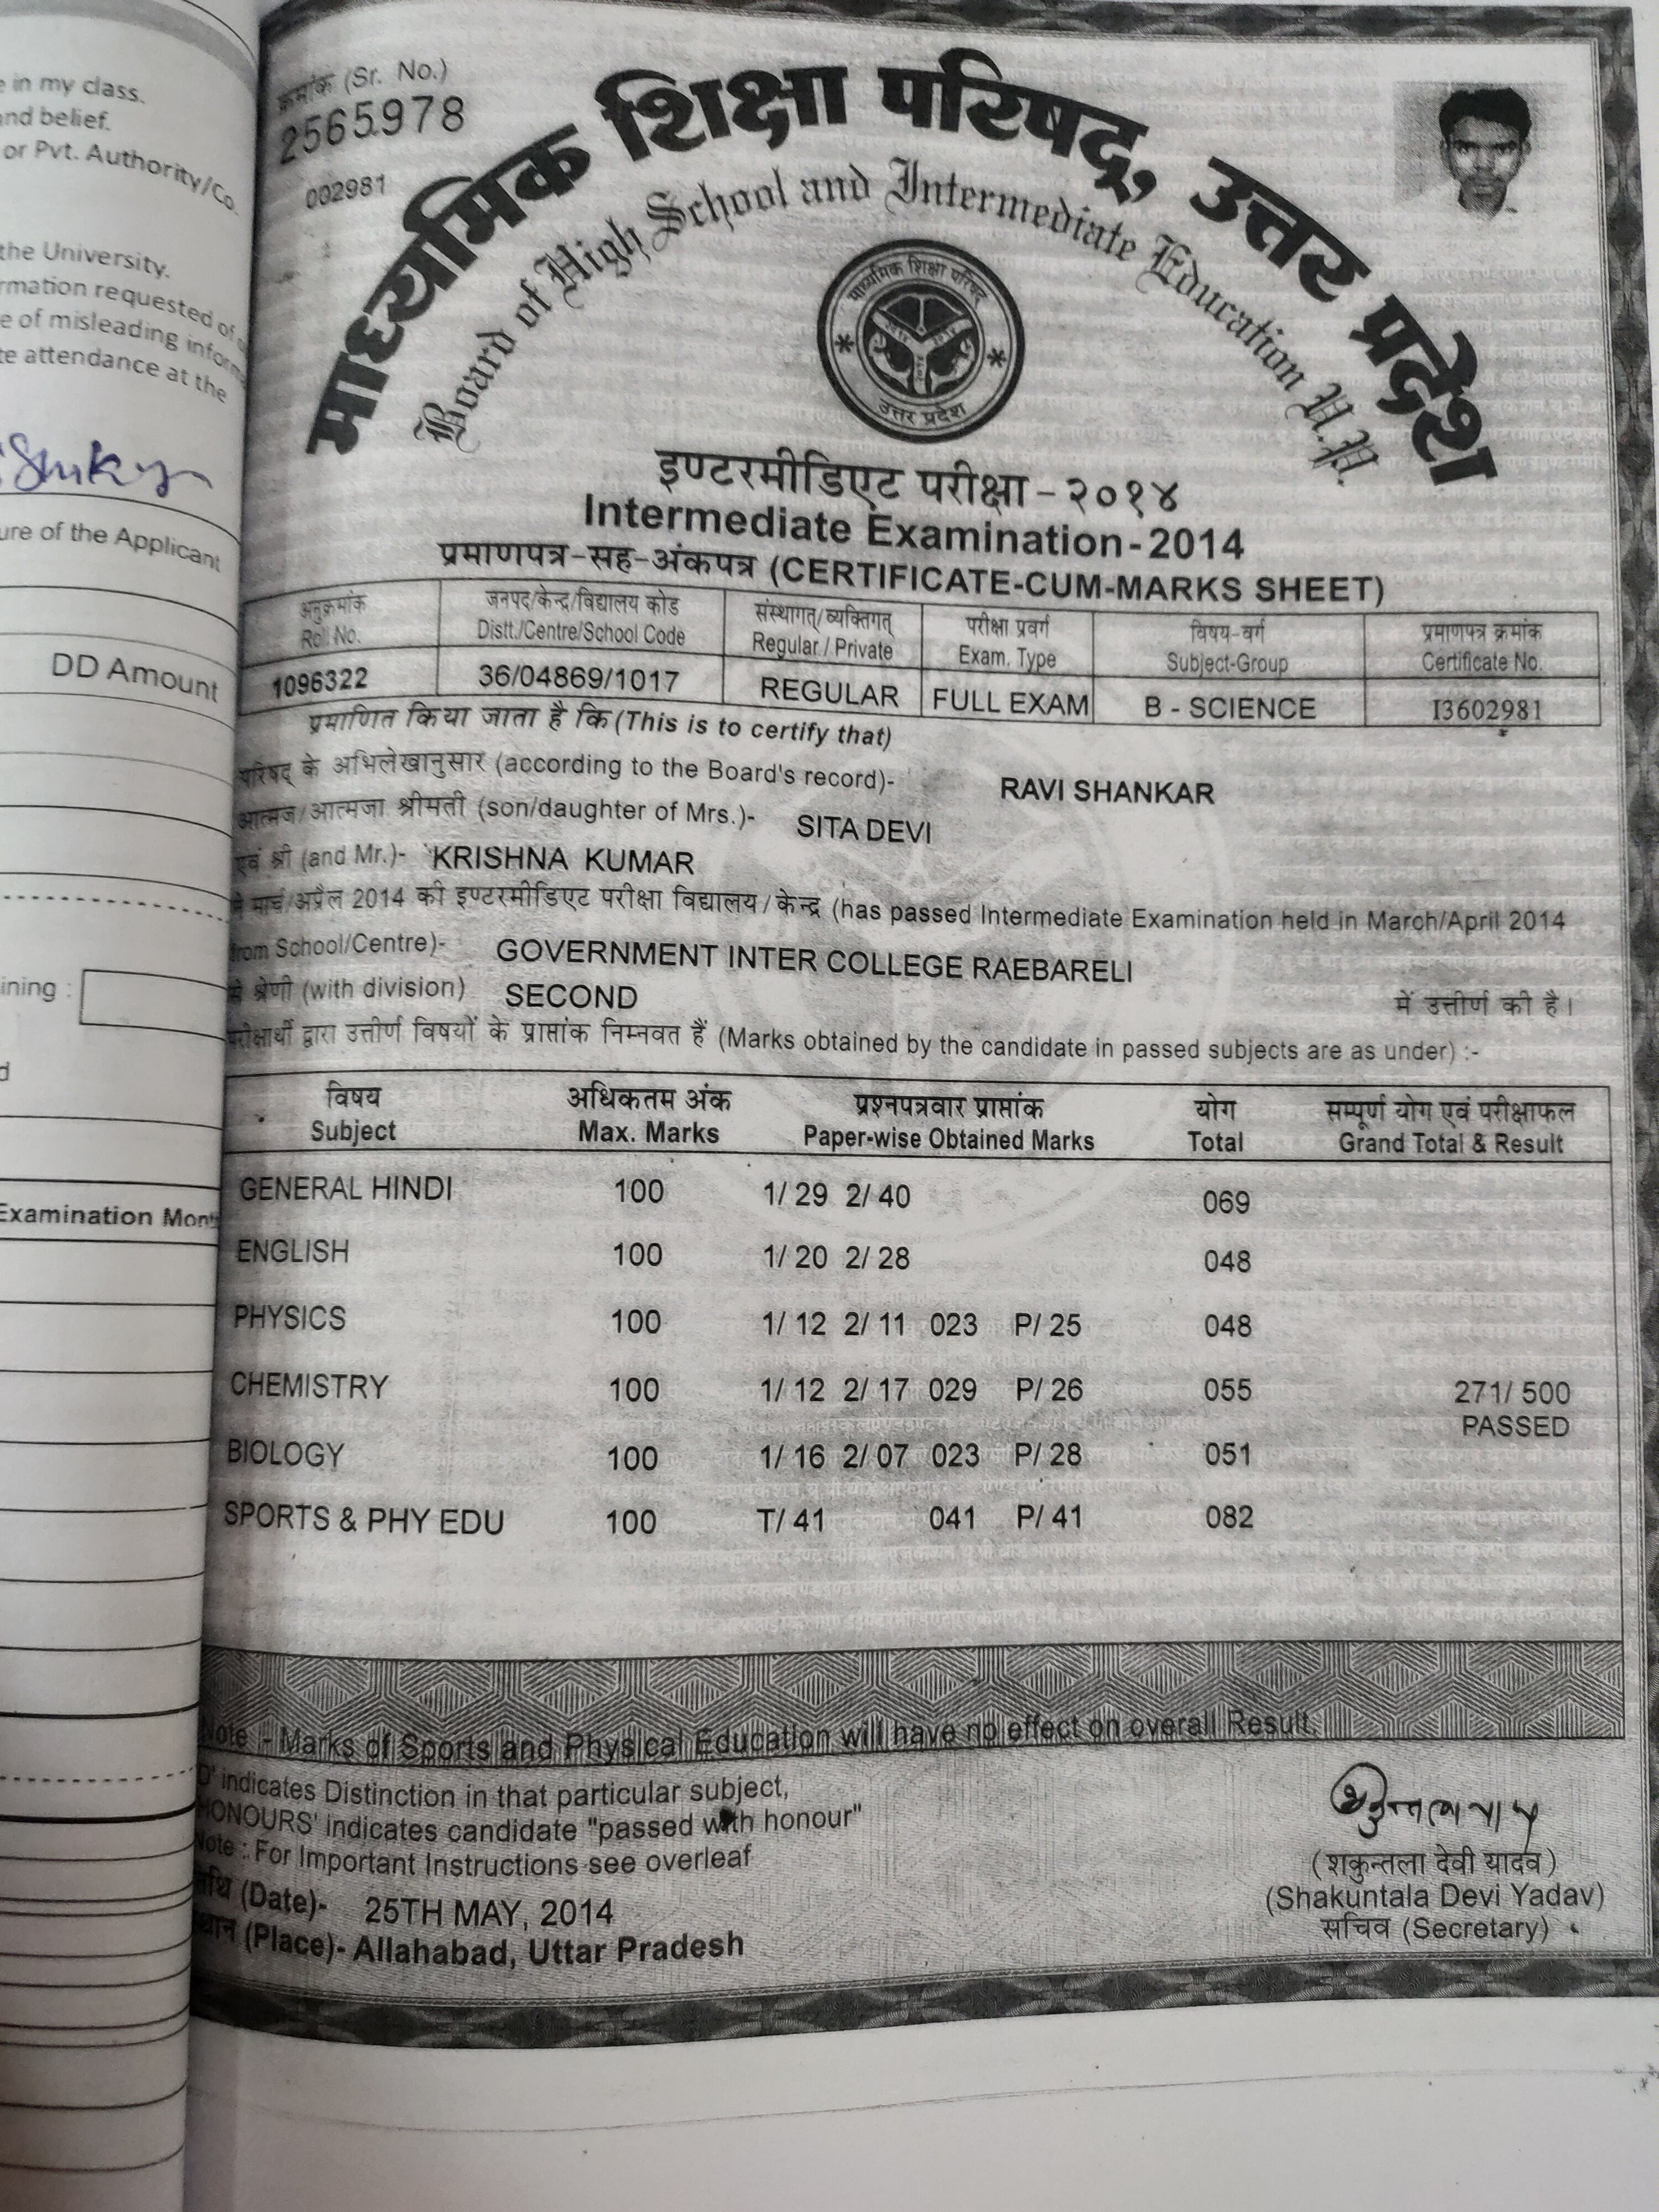 e in my class.
and belief.
or Pvt. Authority/Co.
the University.
rmation requested of
e of misleading inform
te attendance at the
ure of the Applicant
DD Amount
ining :
d
Examination Mont
क्रमांक (Sr. No.)
2565978
002981
माध्यमिक शिक्षा परिषद्, उत्तर प्रदेश
Board of High School and Intermediate Education U.P.
माध्यमिक शिक्षा परिषद
उत्तर प्रदेश
इण्टरमीडिएट परीक्षा - २०१४
Intermediate Examination - 2014
प्रमाणपत्र-सह-अंकपत्र (CERTIFICATE-CUM-MARKS SHEET)
अनुक्रमांक जनपद/केन्द्र/विद्यालय कोड संस्थागत्/व्यक्तिगत् परीक्षा प्रवर्ग विषय-वर्ग प्रमाणपत्र क्रमांक
Roll No. Distt./Centre/School Code Regular / Private Exam. Type Subject-Group Certificate No.
1096322 36/04869/1017 REGULAR FULL EXAM B - SCIENCE I3602981
प्रमाणित किया जाता है कि (This is to certify that)
परिषद् के अभिलेखानुसार (according to the Board's record)- RAVI SHANKAR
आत्मज/आत्मजा श्रीमती (son/daughter of Mrs.)- SITA DEVI
एवं श्री (and Mr.)- KRISHNA KUMAR
ने मार्च/अप्रैल 2014 की इण्टरमीडिएट परीक्षा विद्यालय/केन्द्र (has passed Intermediate Examination held in March/April 2014
from School/Centre)- GOVERNMENT INTER COLLEGE RAEBARELI
से श्रेणी (with division) SECOND में उत्तीर्ण की है।
परीक्षार्थी द्वारा उत्तीर्ण विषयों के प्राप्तांक निम्नवत हैं (Marks obtained by the candidate in passed subjects are as under) :-
विषय अधिकतम अंक प्रश्नपत्रवार प्राप्तांक योग सम्पूर्ण योग एवं परीक्षाफल
Subject Max. Marks Paper-wise Obtained Marks Total Grand Total & Result
GENERAL HINDI 100 1/ 29 2/ 40 069
ENGLISH 100 1/ 20 2/ 28 048
PHYSICS 100 1/ 12 2/ 11 023 P/ 25 048
CHEMISTRY 100 1/ 12 2/ 17 029 P/ 26 055 271/ 500
PASSED
BIOLOGY 100 1/ 16 2/ 07 023 P/ 28 051
SPORTS & PHY EDU 100 T/ 41 041 P/ 41 082
Note :- Marks of Sports and Physical Education will have no effect on overall Result.
'D' indicates Distinction in that particular subject,
HONOURS' indicates candidate "passed with honour"
Note : For Important Instructions see overleaf
तिथि (Date)- 25TH MAY, 2014
स्थान (Place)- Allahabad, Uttar Pradesh
(शकुन्तला देवी यादव)
(Shakuntala Devi Yadav)
सचिव (Secretary)